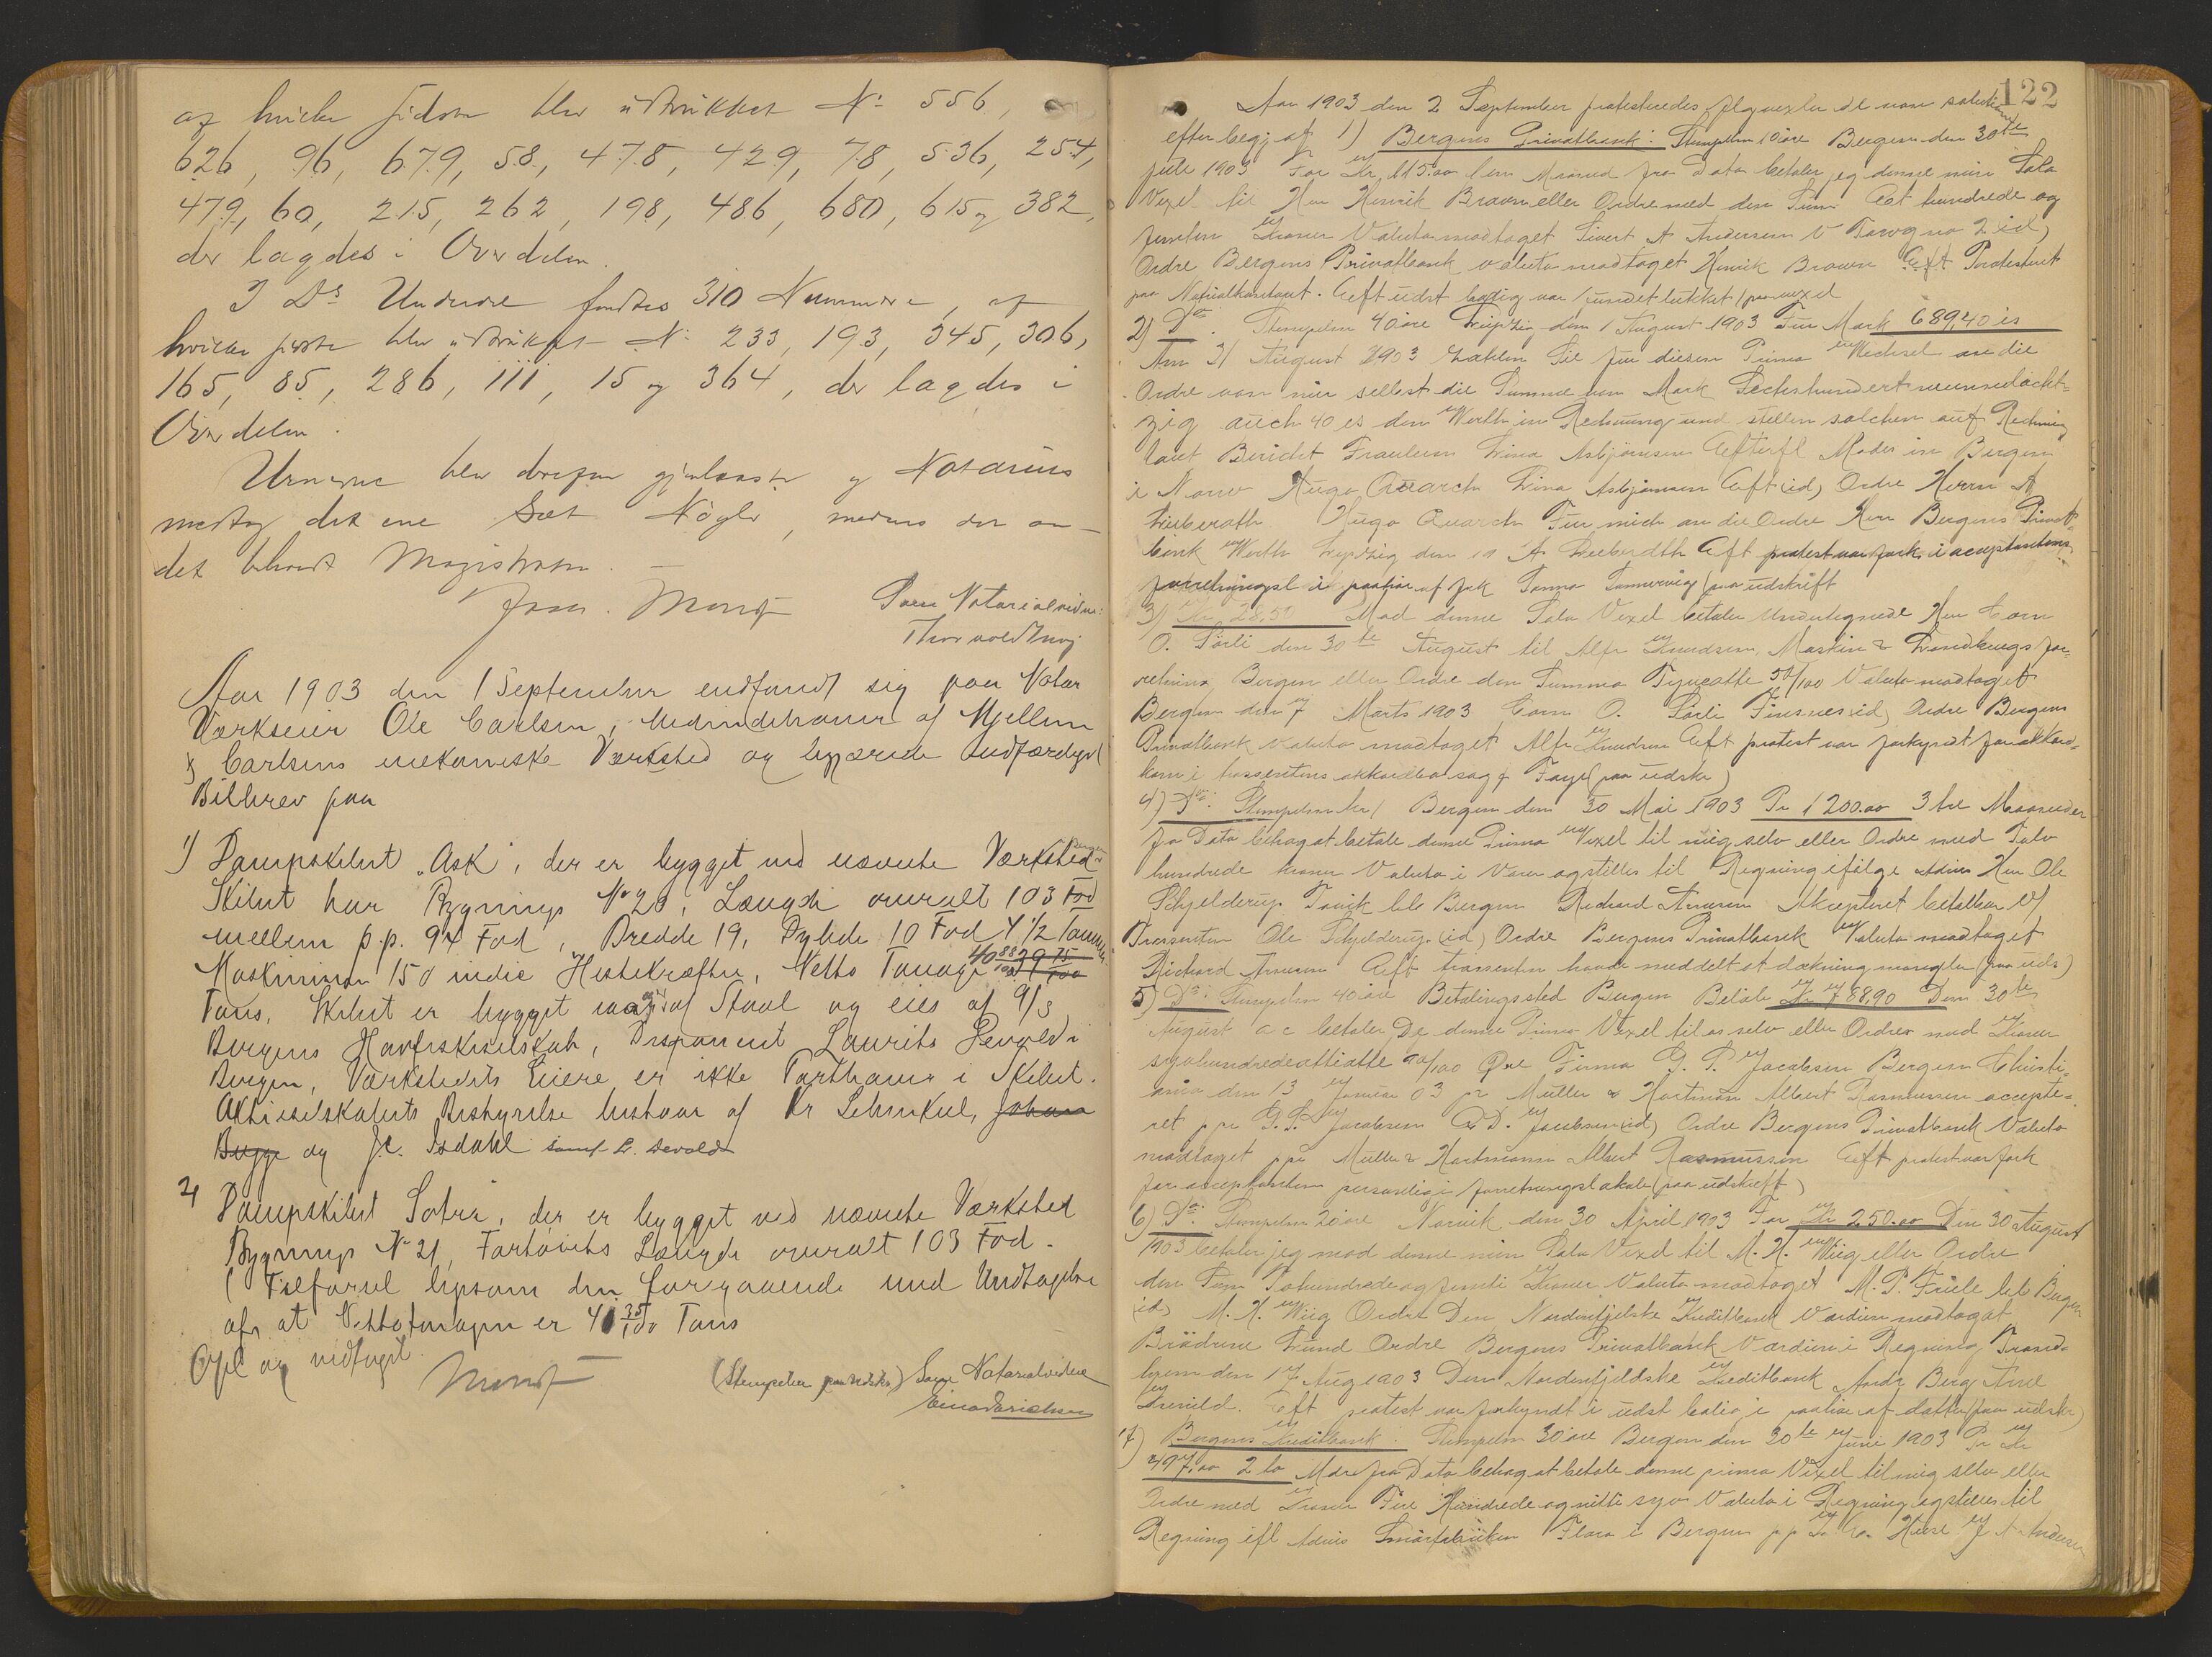 af hvilke sidste blev udtrukket No 556,
626, 96, 679, 58, 478, 429, 78, 536, 254,
479, 60, 215, 262, 198, 486, 680, 615 og 382,
der lagdes i Overdelen.
I Ds Underdel fandtes 310 Nummere, af
hvilke første blev udtrukket No 233, 193, 345, 306,
165, 85, 286, 111, 15 og 364, der lagdes i
Overdelen.
Urnerne blev derefter gjenlaaste og Notarius
modtog det ene Sæt Nøgler, medens det an-
det beholdt Magistraten. —
Som Notarialvidne:
Aar 1903 den 1 September indfandt sig paa Notar
Værkseier Ole Carlsen, Medindehaver af Mjellem
& Carlsens mekaniske Værksted og begjærede udfærdiget
Bilbrev paa
1) Dampskibet "Ask", der er bygget ved nævnte Værksted
Skibet har Bygnings No 20, Længde overalt 103 Fod
mellem p.p. 94 Fod, Bredde 19, Dybde 10 Fod 4 1/2 Tommer
Maskineri 150 indic Hestekræfter, Netto Tonage 40 88/100 39 75/100
Tons. Skibet er bygget af Staal og eies af A/S
Bergens Havfiskeselskab, Disponent Laurits Devold i
Bergen, Værkstedets Eiere er ikke Parthaver i Skibet.
Aktieselskabets Bestyrelse bestaar af Kr Lehmkul, Johan
Bugge og J.C. Isdahl samt L. Devold
2) Dampskibet Sotra, der er bygget ved nævnte Værksted
Bygnings No 21, Fartøiets Længde overalt 103 Fod.
(Tilførsel ligesom den foregaaende med Undtagelse
af, at Nettotonagen er 41 35/100 Tons
Opl og vedtaget.
(Stempelen paa udskr) Som Notarialvidne
122
Aar 1903 den 2 September protesteredes flg vexler de non solutione
efter begj af 1) Bergens Privatbank: Stempelm 10 øre Bergen den 30te
juli 1903 For Kr. 115.00 1 en Maaned fra Dato betaler jeg denne min Sola
Vexel til Herr Henrik Braun eller Ordre med den Sum Et hundrede og
femten Kroner Valuta modtaget Sivert A Andersen
Ordre Bergens Privatbank valuta modtaget Henrik Braun Eft Protesteret
paa Notarialkontoret. Eft udst bolig var fundet lukket (paa vexel
2) Do. Stempelm 40 øre Leipzig den 1 August 1903 Für Mark 689,40 is
Am 31 August 1903 zahlen Sie für diesen Prima Wechsel an die
Ordre von mir selbst die Summe von Mark Sechshundertneunundacht=
zig auch 40 es den Werth in Rechnung und stellen solchen auf Rechnung
laut Bericht Fraulein Lina Asbjørnsen Efterfl Moder in Bergen
i Norw Hugo Quarch Lina Asbjørnsen Eft (id) Ordre Herrn A
Hugo Quarch Für mich an die Ordre Herr Bergens Privat=
bank Werth Leipzig den A Eft protest var fork i acceptantens
forretningsl i paahør af
3) Kr 28,50 Mod denne Sola Vexel betaler Undertegnede Herr Corn
O. Sørli den 30te August til Alfr Knudsen, Maskin & Landbrugs for=
retning Bergen eller Ordre den Summa Tyveotte 50/100 Valuta modtaget
Bergen den 7 Marts 1903 Corn O. Sørli Finsnes (id) Ordre Bergens
Privatbank valuta modtaget Alfr Knudsen Eft protest var forkyndt
(paa udskr)
4) Do. Stempelm kr 1 Bergen den 30 Mai 1903 Pr 1200.00 3 tre Maaneder
fra Dato behag at betale denne Prima Vexel til mig selv eller Ordre med Tolv
hundrede kroner Valuta i Varer og stilles til Regning ifølge Advis Herr Ole
Schjelderup Bergen Richard Arnesen Akcepteret betalbar v/
Trassenten Ole Schjelderup (id) Ordre Bergens Privatbank Valuta modtaget
Richard Arnesen Eft trassenten havde meddelt at dækning mangler (paa uds)
5) Do: Stempelm 40 øre Betalingssted Bergen Beløb Kr 788.90 Den 30te
August a c betaler De denne Prima Vexel til os selv eller Ordre med Kroner
syvhundredeottiotte 90/100 Øre Firma G. P. Jacobsen Bergen Christi=
ania den 13 Januar 03 pr Müller & Hartman Albert Rasmussen accepte=
ret ppa G. P. Jacobsen D. Jacobsen (id) Ordre Bergens Privatbank Valuta
modtaget ppa Müller & Hartmann Albert Rasmussen Eft protest var fork
for acceptanten personlig i forretningslokale (paa udskrift)
6) Do: Stempelm 20 øre Narvik den 30 April 1903 For Kr 250.00 Den 30 August
1903 betaler jeg mod denne min Sola Vexel til M. H. Wiig eller Ordre
den Sum Tohundredeogfemti Kroner Valuta modtaget M. P. Friele Bergen
(id) M. H. Wiig Ordre Den Nordenfjeldske Kreditbank Værdien modtaget
Brødrene Lund Ordre Bergens Privatbank Værdien i Regning Trond=
hjem den 17 Aug 1903 Den Nordenfjeldske Kreditbank Andr Berg
Eft protest var forkyndt i udst bolig i paahør af datter (paa udskr)
7) Bergens Kreditbank: Stempelm 30 øre Bergen den 30te Juni 1903 Pr Kr
497.00 2 to Mdr fra Dato behag at betale denne prima Vexel til mig selv eller
Ordre med Kroner Fire Hundrede og nitti syv Valuta i Regning og stilles til
Regning ifl Advis Smørfabriken Flora i Bergen